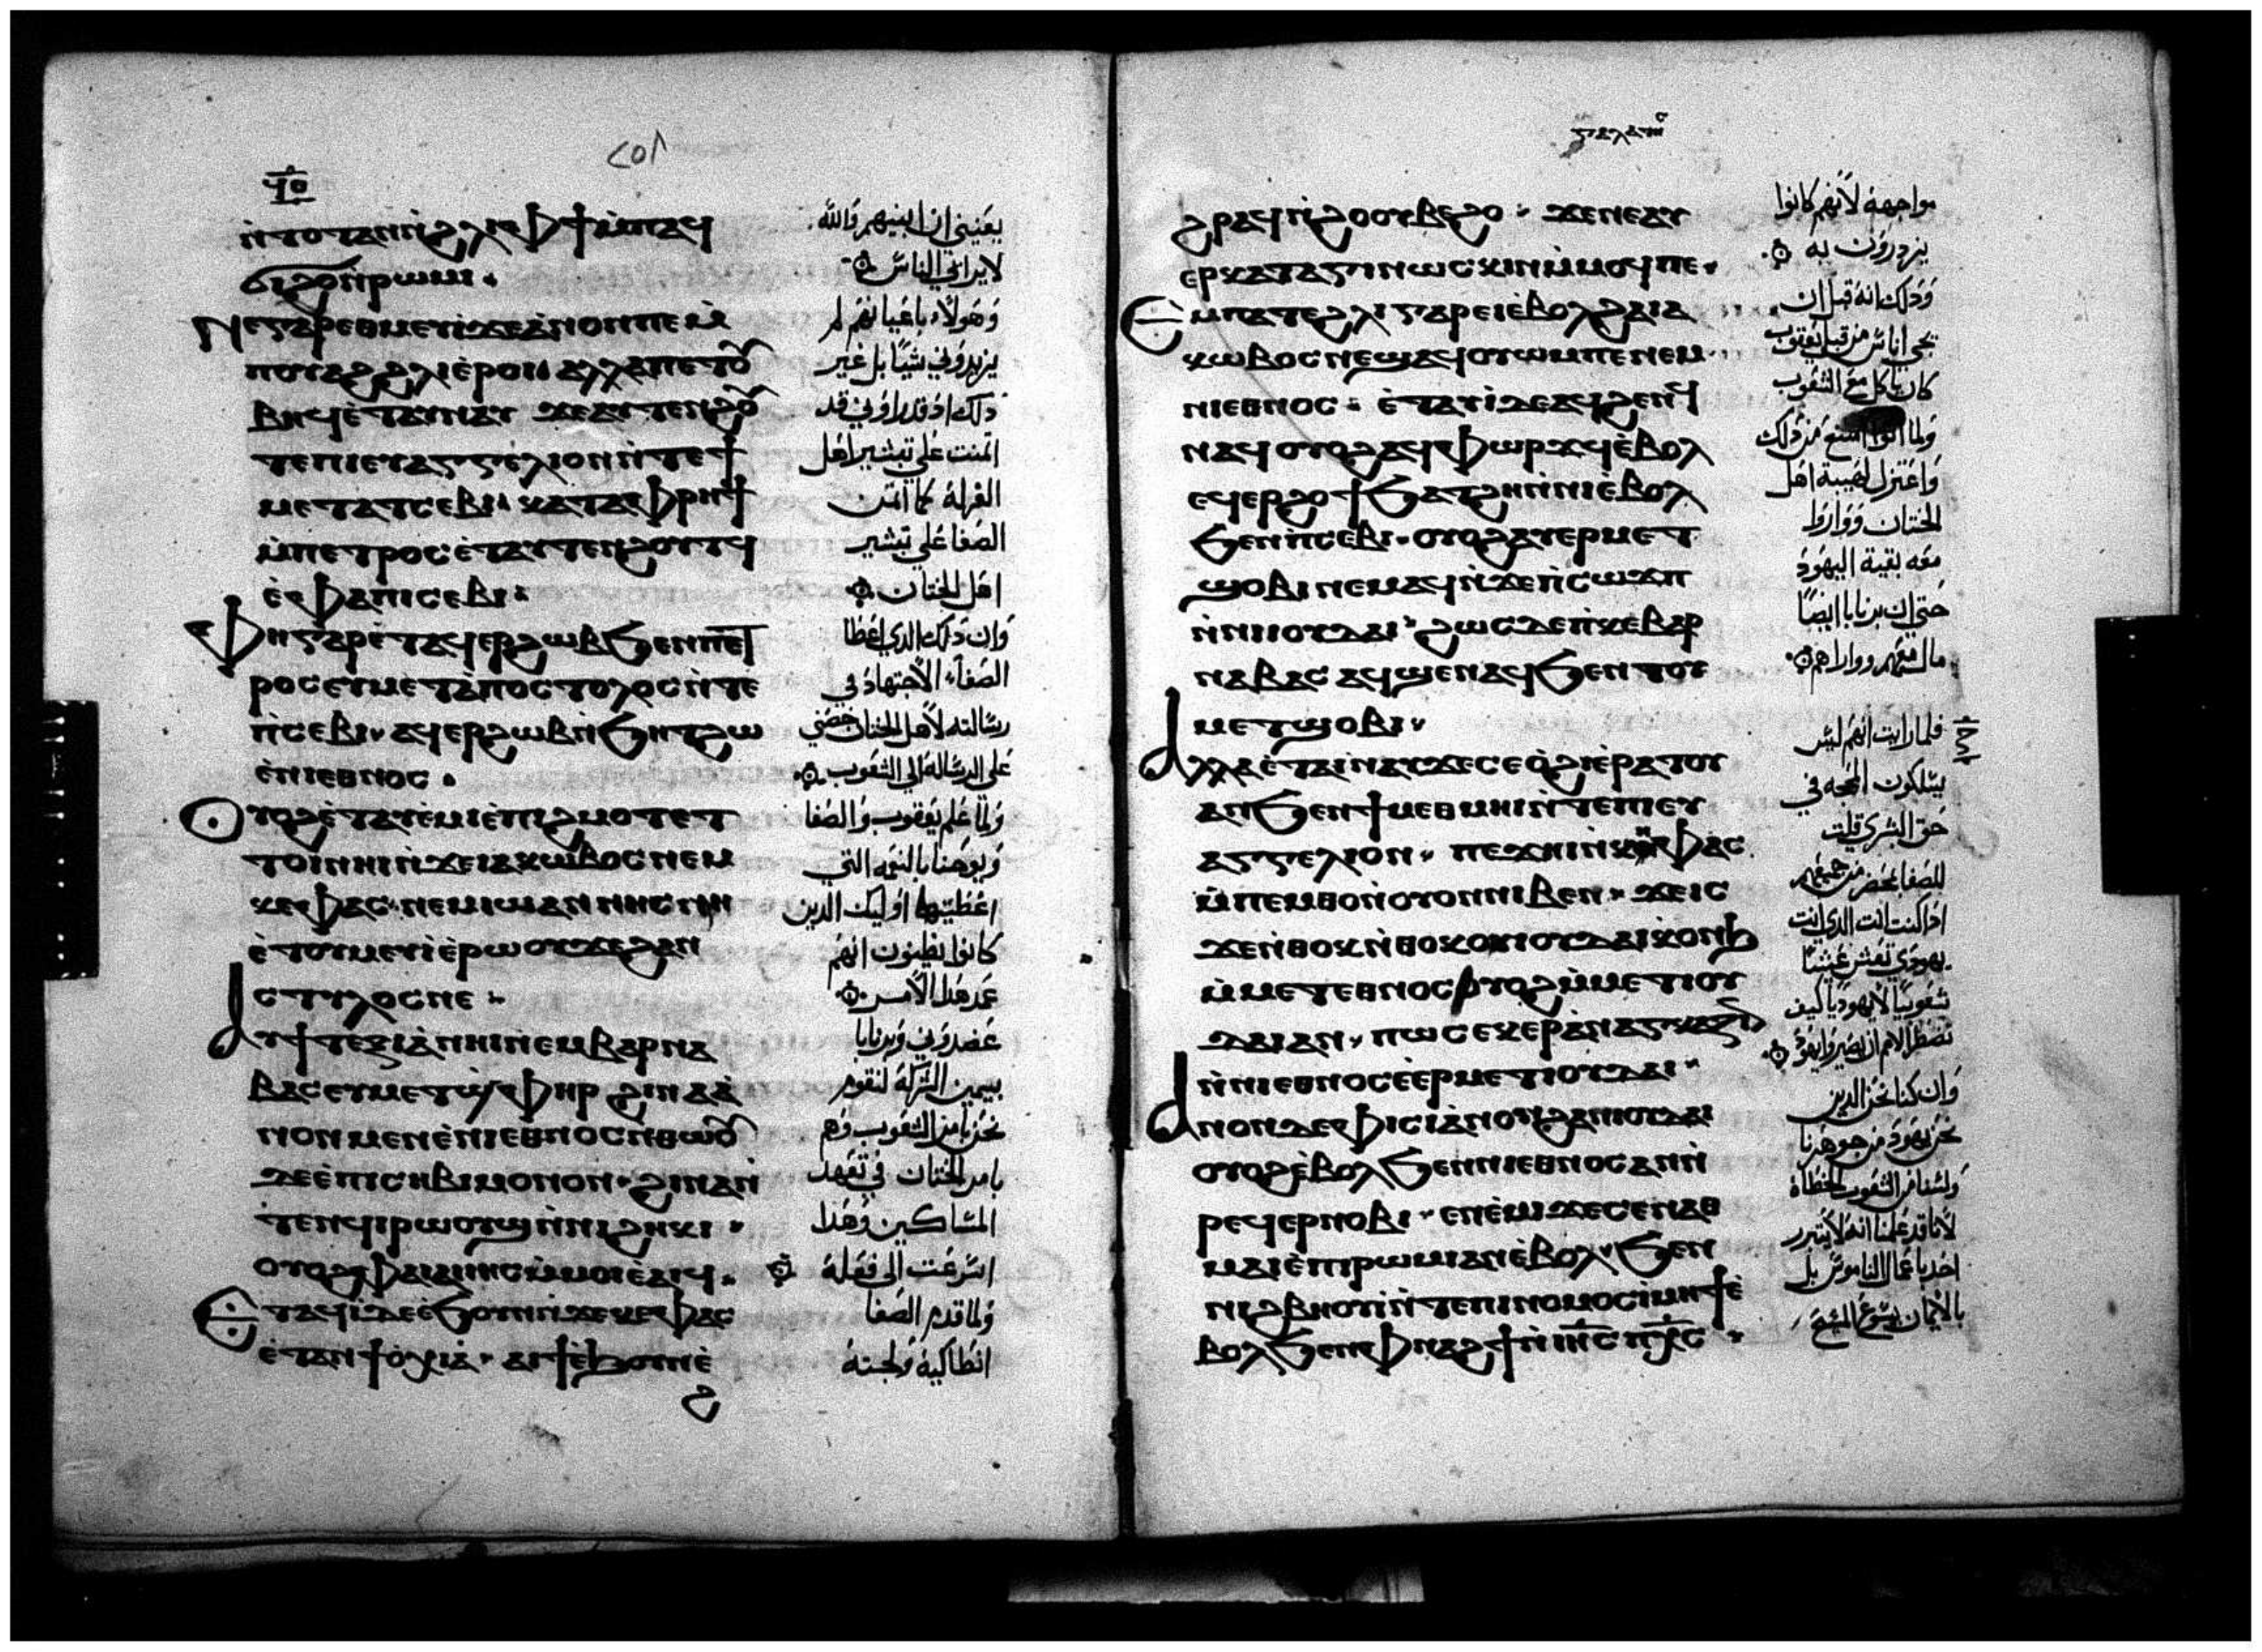 ٢٥٨
ⲛ̀ⲧⲟⲧⲁⲛⲛ̀ϩⲗⲓ ⲫϯⲙ̀ⲡⲁϥ
ϭⲓϩⲟⲛ̀ⲣⲱⲙⲓ
ⲛⲉⲅⲁⲣⲉⲑⲙⲉⲩⲓϫⲉⲁ̀ⲛⲟⲛⲡⲉⲙ̀
ⲡⲟⲩⲁϩϩⲗⲓⲉ̀ⲣⲟⲓ ⲁⲗⲗⲁⲡⲉⲧⲟⲩ
ⲃⲏϥⲉ̀ⲧⲁⲩⲛⲁⲩ ϫⲉⲁⲩⲧⲉⲛϩⲟⲩ
ⲧⲉⲡⲓⲉⲩⲁⲅⲅⲉⲗⲓⲟⲛⲛ̀ⲧⲉϯ
ⲙⲉⲧⲁⲧⲥⲉⲃⲓ ⲕⲁⲧⲁⲫⲣⲏϯ
ⲙ̀ⲡⲉⲧⲣⲟⲥⲉ̀ⲧⲁⲩⲧⲉⲛϩⲟⲩⲧϥ
ⲉ̀ⲫⲁⲡⲓⲥⲉⲃⲓ
ⲫⲏⲅⲁⲣⲉ̀ⲧⲁϥⲉⲣϩⲱⲃϧⲉⲛⲡⲉⲧ
ⲣⲟⲥⲉⲩⲙⲉⲧⲁ̀ⲡⲟⲥⲧⲟⲗⲟⲥⲛ̀ⲧⲉ
ⲡ̀ⲥⲉⲃⲓ ⲁϥⲉⲣϩⲱⲃⲛ̀ϧⲏⲧϩⲱ
ⲉ̀ⲛⲓⲉⲑⲛⲟⲥ
ⲟⲩⲟϩⲉ̀ⲧⲁⲩⲉ̀ⲙⲓⲉ̀ⲡⲓϩⲙⲟⲧⲉⲧ
ⲧⲟⲓⲛⲏⲓⲛ̀ϫⲉⲓⲁⲕⲱⲃⲟⲥⲛⲉⲙ
ⲕⲉⲫⲁⲥ ⲛⲉⲙⲓⲱⲁⲛⲛⲏⲥⲛⲏ
ⲉ̀ⲧⲟⲩⲙⲉⲩⲓⲉ̀ⲣⲱⲟⲩϫⲉϩⲁⲛ
ⲥⲧⲩⲗⲟⲥⲛⲉ
ⲁⲩϯⲧⲉⲝⲓⲁ̀ⲛⲏⲓⲛⲉⲙⲃⲁⲣⲛⲁ
ⲃⲁⲥⲉⲩⲙⲉⲧϣ̀ⲫⲏⲣ ϩⲓⲛⲁⲁ̀
ⲛⲟⲛⲙⲉⲛⲉ̀ⲛⲓⲉⲑⲛⲟⲥⲛ̀ⲑⲱⲟⲩ
ⲇⲉⲉ̀ⲡⲓⲥⲏⲃⲓⲙⲟⲛⲟⲛ ϩⲓⲛⲁⲛ̀
ⲧⲉⲛϥⲓⲣⲱⲟⲩϣⲛ̀ⲛⲓϩⲏⲕⲓ
ⲟⲩⲟϩⲫⲁⲓⲁⲓⲓⲏⲥⲙ̀ⲙⲟⲓⲉ̀ⲁⲓϥ
ⲉⲧⲁϥⲓ̀ⲇⲉⲉ̀ϧⲟⲩⲛⲛ̀ϫⲉⲕⲉⲫⲁⲥ
ⲉ̀ⲧⲁⲛϯⲟ̀ⲭⲓⲁ̀ ⲁⲓϯⲉ̀ϧⲟⲩⲛⲉ̀
ϩ
يعنيني ان ابينهم والله
لا يرائي الناس
وهولاء باعيانهم لم
يزيدوني شيئا بل غير
ذلك اذ قد راوني قد
اتمنت على تبشير اهل
الغرلة كما اتمن
الصفا على تبشير
اهل الختان
وان ذلك الدي اعطا
الصفا الاجتهاد في
رسالته لاهل الختان خصني
على الرسالة الى الشعوب
ولما علم يعقوب والصفا
ويوحنا بالنعمه التي
اعطيتها اوليك الدين
كانوا يظنون انهم
عمد هذا الامر
عضدوني وبرنابا
بيمين الشركة لنقوم
نحن بامر الشعوب وهم
بامر الختان في تعهد
المساكين وهذا
اسرعت الى فعله
ولما قدم الصفا
انطاكية ولجته
ⲅⲁⲗⲁⲧ
ϩⲣⲁϥⲛ̀ϩⲟⲟⲩⲃⲉϩⲟ ϫⲉⲛⲉⲁⲩ
ⲉⲣⲕⲁⲧⲁⲅⲓⲛⲱⲥⲕⲓⲛⲙ̀ⲙⲟϥⲡⲉ
ⲉⲙⲡⲁⲧⲉϩⲗⲓⲅⲁⲣⲉⲓⲉ̀ⲃⲟⲗϩⲁⲓⲁ
ⲕⲱⲃⲟⲥⲛⲉϣⲁϥⲟⲩⲱⲙⲡⲉⲛⲉⲙ
ⲛⲓⲉⲑⲛⲟⲥ ⲉ̀ⲧⲁⲩⲓ̀ⲇⲉⲁϥϩⲉⲛϥ
ⲛⲁϥⲟⲩⲟϩⲁϥⲫⲱⲣϫϥⲉ̀ⲃⲟⲗ
ⲉϥⲉⲣϩⲟϯϧⲁⲧϩⲏⲛ̀ⲛⲓⲉ̀ⲃⲟⲗ
ϧⲉⲛⲡ̀ⲥⲉⲃⲓ ⲟⲩⲟϩⲁⲩⲉⲣⲙⲉⲧ
ϣⲟⲃⲓⲛⲉⲙⲁϥⲛ̀ϫⲉⲡ̀ⲥⲱϫⲡ
ⲛ̀ⲛⲓⲓⲟⲩⲇⲁⲓ ϩⲱⲥⲇⲉⲛ̀ⲕⲉⲃⲁⲣ
ⲛⲁⲃⲁⲥ ⲁϥϣⲉⲛⲁϥϧⲉⲛⲧⲟⲩ
ⲙⲉⲧϣⲟⲃⲓ
ⲁⲗⲗⲁⲉ̀ⲧⲁⲓⲛⲁⲩϫⲉⲥⲉⲟ̀ϩⲓⲉ̀ⲣⲁⲧⲟⲩ
ⲁⲛϧⲉⲛϯⲙⲉⲑⲙⲏⲓⲛ̀ⲧⲉⲡⲓⲉⲩ
ⲁⲅⲅⲉⲗⲓⲟⲛ ⲡⲉϫⲏⲓⲛ̀ⲕⲏⲫⲁⲥ
ⲙ̀ⲡⲉⲙⲑⲟⲛ̀ⲟⲩⲟⲛⲛⲓⲃⲉⲛ ϫⲉⲓⲥ
ϫⲉⲛ̀ⲑⲟⲕⲛ̀ⲑⲟⲕⲟⲩⲓⲟⲩⲇⲁⲓⲕⲟⲛϧ
ⲙ̀ⲙⲉⲧⲉⲑⲛⲟⲥⲟⲩⲟϩⲙ̀ⲙⲉⲧⲓⲟⲩ
ⲇⲁⲓⲁⲛ ⲡⲱⲥⲉⲕⲉⲣⲁ̀ⲛⲁⲅⲕⲁⲍⲓⲛ
ⲛ̀ⲛⲓⲉⲑⲛⲟⲥⲉ̀ⲉⲣⲙⲉⲧⲓⲟⲩⲇⲁⲓ
ⲁⲛⲟⲛⲇⲉⲫⲩⲥⲓⲁ̀ⲛⲟⲛϩⲁⲛⲓⲟⲩⲇⲁⲓ
ⲟⲩⲟϩⲉ̀ⲃⲟⲗϧⲉⲛⲛⲓⲉⲑⲛⲟⲥⲁⲛⲛ̀
ⲣⲉϥⲉⲣⲛⲟⲃⲓ ⲉⲛⲉ̀ⲙⲓϫⲉⲥⲉⲛⲁⲑ
ⲙⲁⲓⲉ̀ⲡⲓⲣⲱⲙⲓⲁⲛⲉ̀ⲃⲟⲗϧⲉⲛ
ⲛⲓϩⲃⲏⲟⲩⲓⲛ̀ⲧⲉⲡⲓⲛⲟⲙⲟⲥⲓⲙⲏϯⲉ̀
ⲃⲟⲗϧⲉⲛⲫⲛⲁϩϯⲛ̀ⲓⲏⲥ ⲡⲭⲥ
مواجهة لانهم كانوا
يزدرون به
وذلك انه قبل ان
يجي اناس من قبل يعقوب
كان ياكل مع الشعوب
ولما اتوا امتنع من ذلك
واعتزل لهيبة اهل
الختان وواروا
معه بقية اليهود
حتى ان برنابا ايضا
مال معهم وواراهم
فلما رايت انهم ليس
يسلكون المحجه في
حق البشرى قلت
للصفا بمحضر من جميعهم
اذا كنت انت الدي انت
يهودي تعش عيشا
شعوبيا لا يهوديا كيف
تضطر الامم ان يصيروا يهود
وان كنا نحن الدين
نحن يهود من جوهرنا
ولسنا من الشعوب الخطاة
لانا قد علمنا انه لا يتبرر
احد باعمال الناموس بل
بالايمان بيسوع المسيح